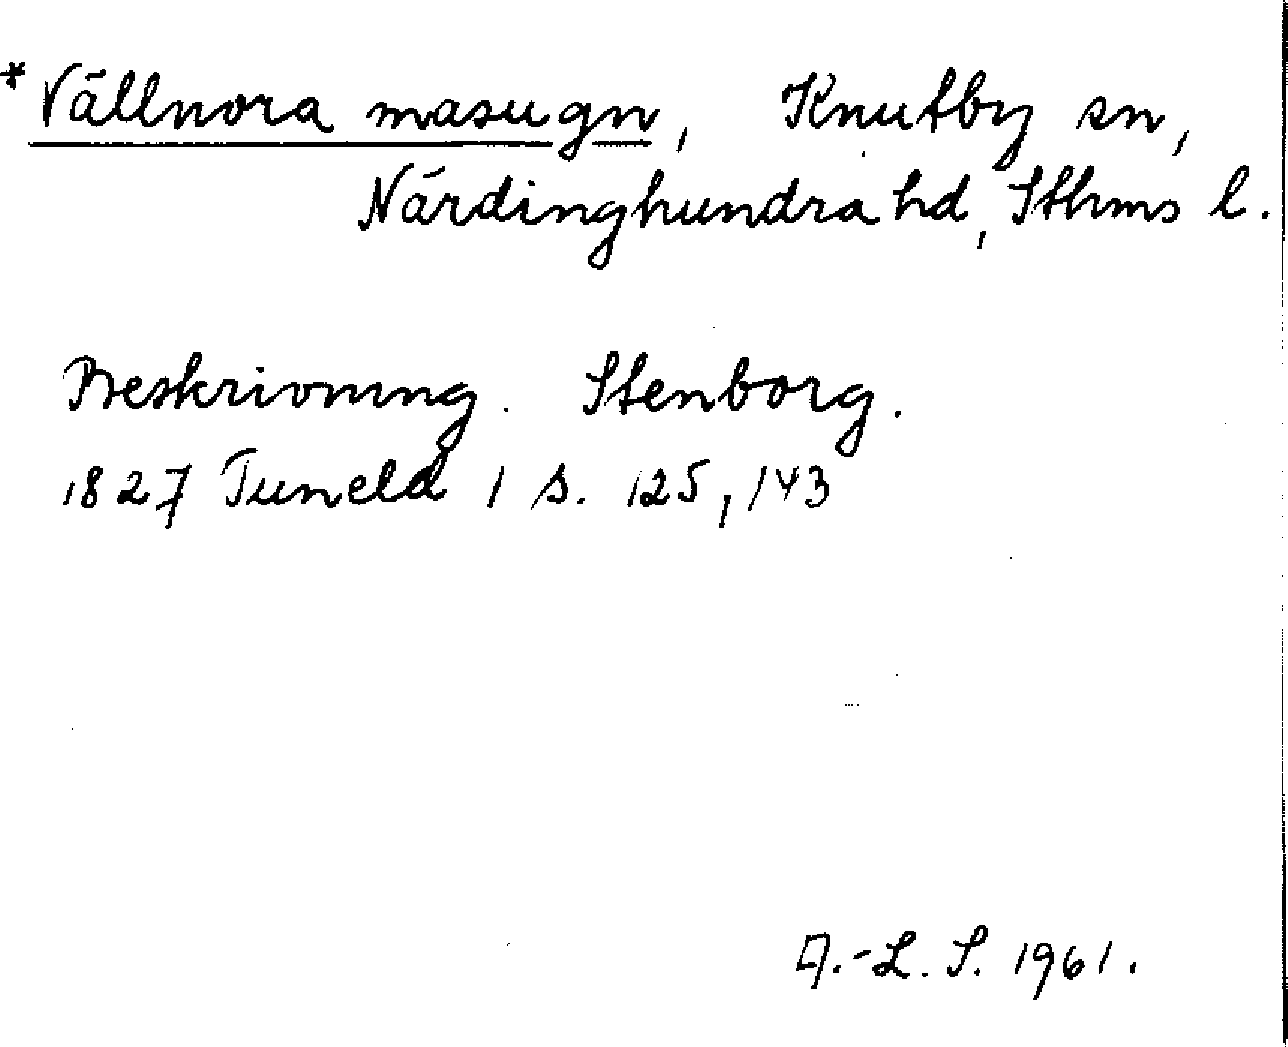 *Vällnora masugn, Knutby sn,
Närdinghundra hd, Sthms l.
Beskrivning. Stenborg.
1827 Tuneld 1 s. 125, 143
A.-L. S. 1961.